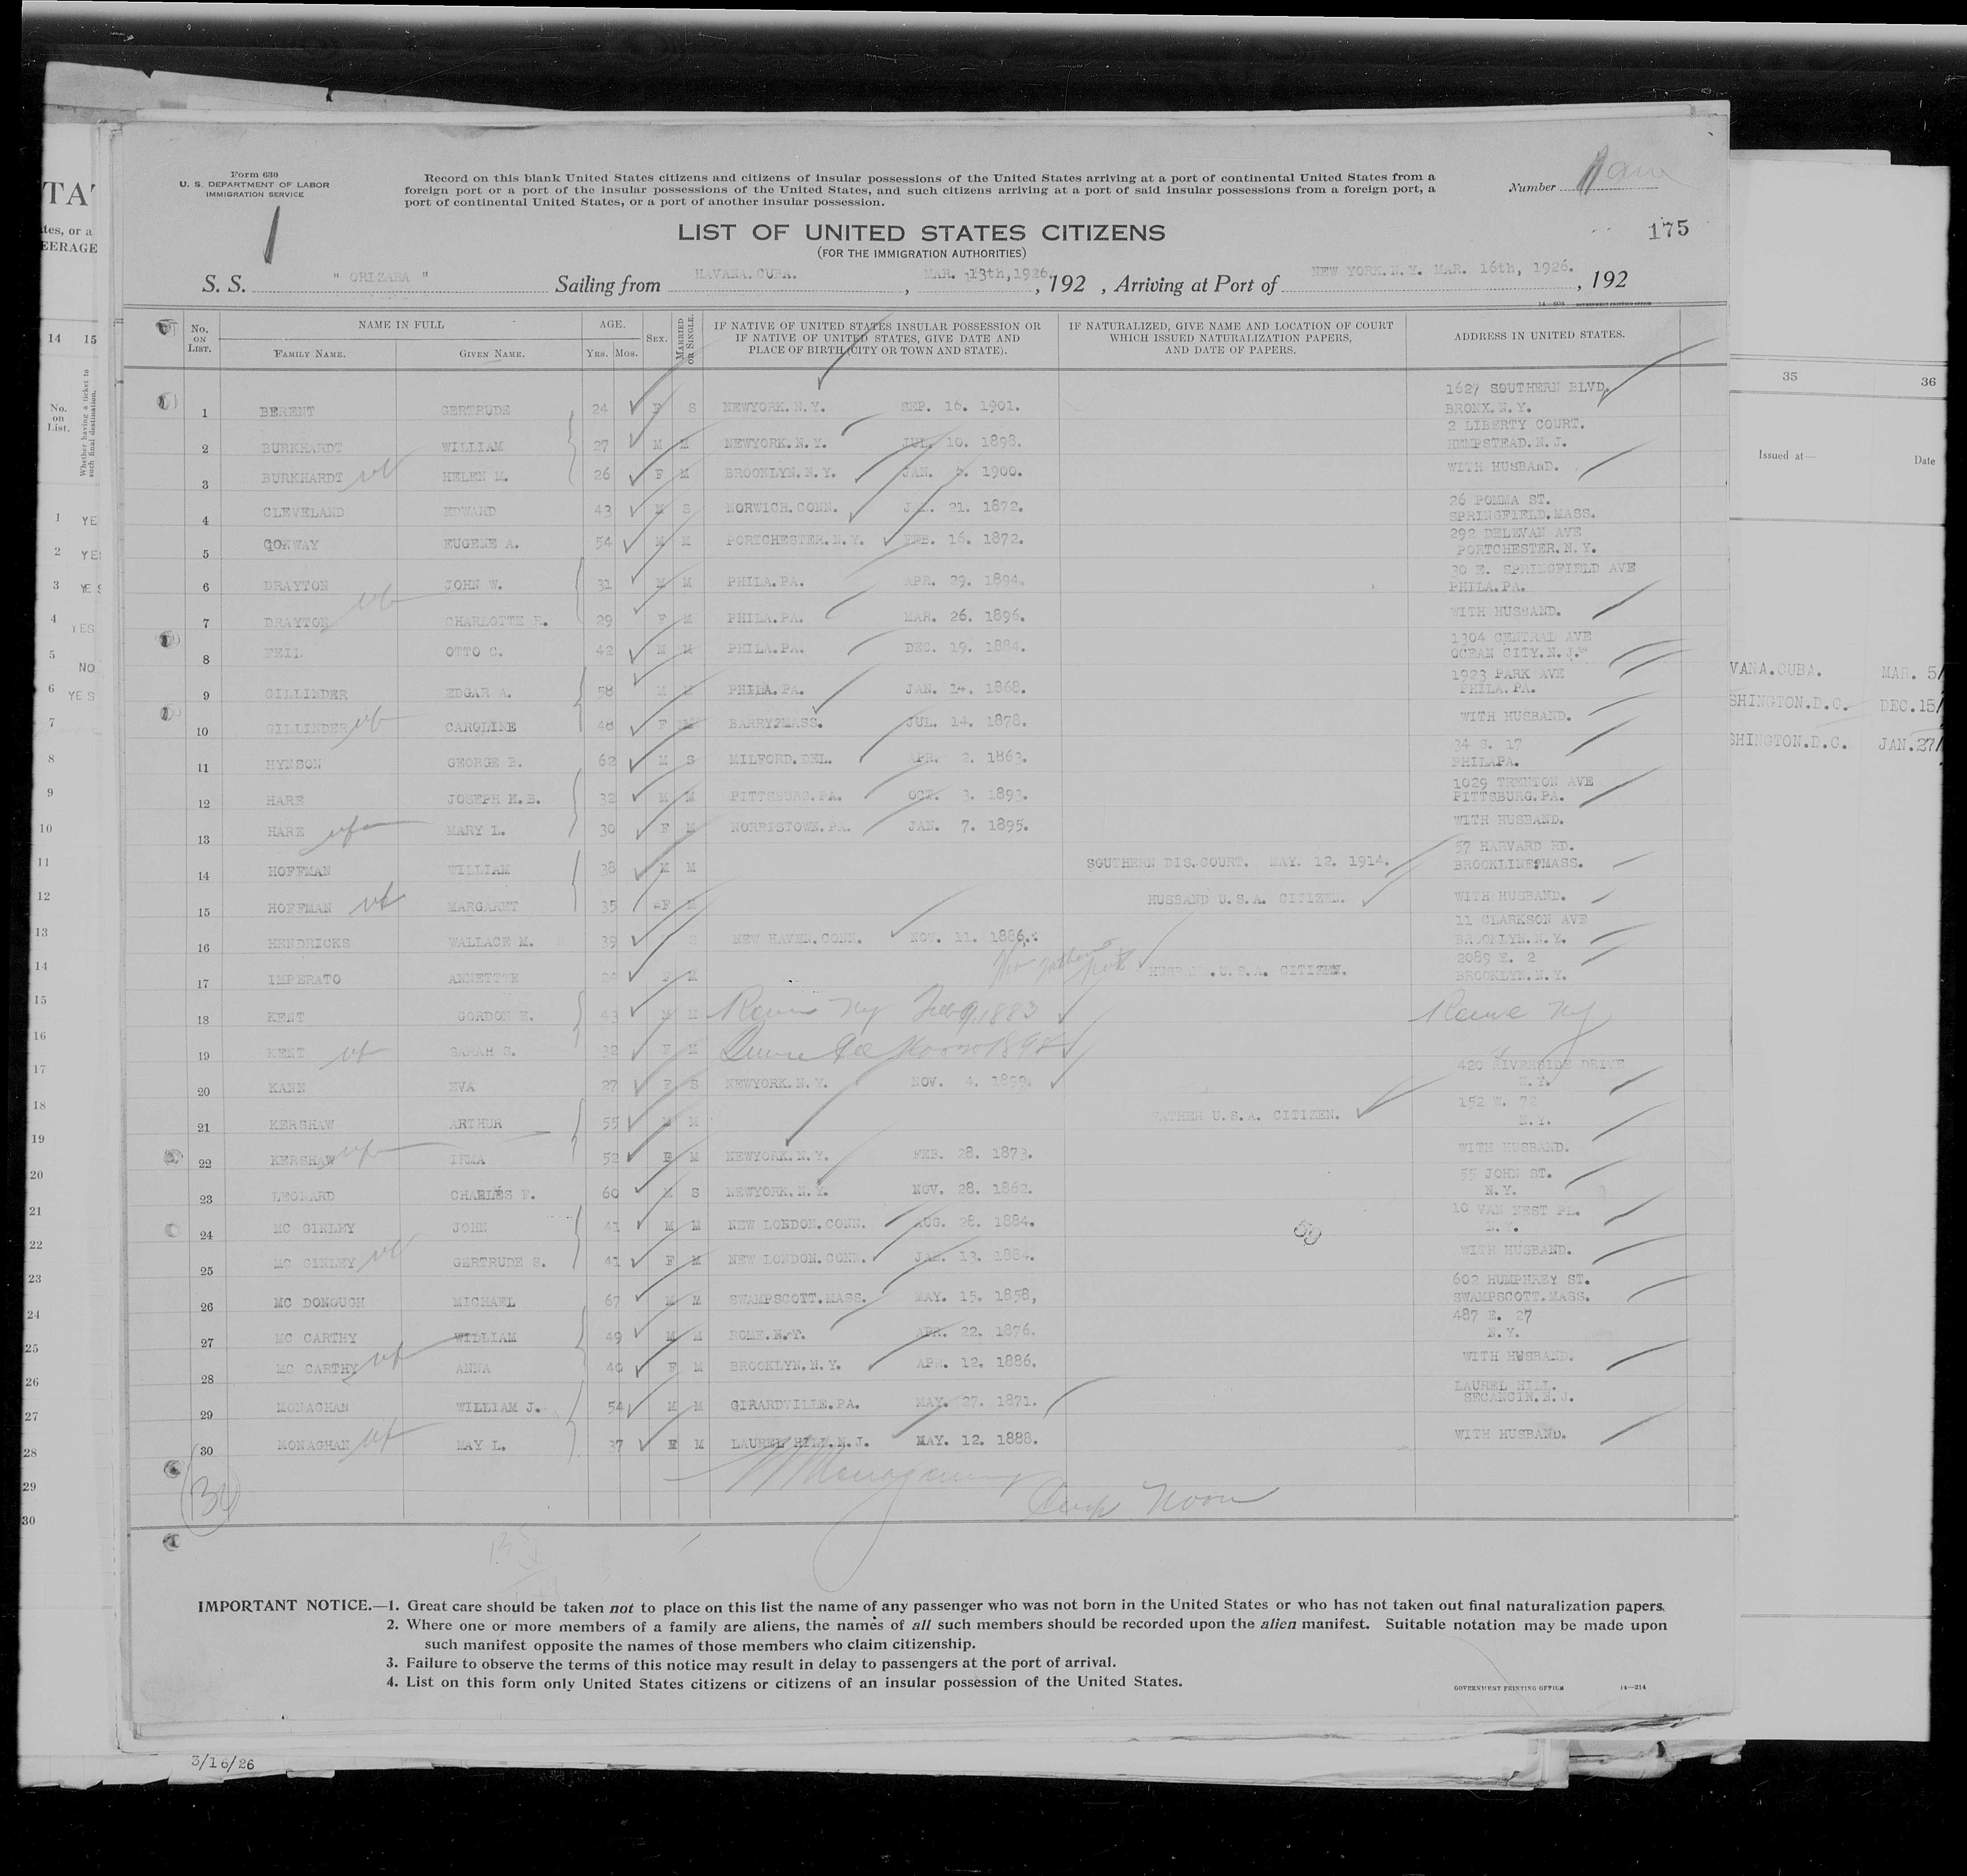 Form 630
U. S. DEPARTMENT OF LABOR
IMMIGRATION SERVICE
Record on this blank United States citizens and citizens of insular possessions of the United States arriving at a port of continental United States from a
foreign port or a port of the insular possessions of the United States, and such citizens arriving at a port of said insular possessions from a foreign port, a
port of continental United States, or a port of another insular possession.
Number
175
LIST OF UNITED STATES CITIZENS
(FOR THE IMMIGRATION AUTHORITIES)
S. S. " ORIZABA " Sailing from HAVANA.CUBA. , MAR. 13th,1926. , 192 , Arriving at Port of NEW YORK.N.Y. MAR. 16th, 1926. , 192
No. ON LIST. NAME IN FULL AGE. SEX. MARRIED OR SINGLE. IF NATIVE OF UNITED STATES INSULAR POSSESSION OR IF NATIVE OF UNITED STATES, GIVE DATE AND PLACE OF BIRTH (CITY OR TOWN AND STATE). IF NATURALIZED, GIVE NAME AND LOCATION OF COURT WHICH ISSUED NATURALIZATION PAPERS, AND DATE OF PAPERS. ADDRESS IN UNITED STATES.
FAMILY NAME. GIVEN NAME. YRS. MOS.
1 BERENT GERTRUDE 24 F S NEWYORK.N.Y. SEP. 16. 1901. 1627 SOUTHERN BLVD. BRONX.N.Y.
2 BURKHARDT WILLIAM 27 M M NEWYORK.N.Y. JUL. 10. 1898. 2 LIBERTY COURT. HEMPSTEAD.N.J.
3 BURKHARDT HELEN M. 26 F M BROOKLYN.N.Y. JAN. 1900. WITH HUSBAND.
4 CLEVELAND EDWARD 43 M S NORWICH.CONN. 21. 1872. 26 POMMA ST. SPRINGFIELD.MASS.
5 CONWAY EUGENE A. 54 M M PORTCHESTER.N.Y. FEB. 16. 1872. 292 DELEVAN AVE PORTCHESTER.N.Y.
6 DRAYTON JOHN W. 31 M M PHILA.PA. APR. 29. 1894. 30 E. SPRINGFIELD AVE PHILA.PA.
7 DRAYTON CHARLOTTE R. 29 F M PHILA.PA. MAR. 26. 1896. WITH HUSBAND.
8 FEIL OTTO C. 42 M M PHILA.PA. DEC. 19. 1884. 1304 CENTRAL AVE OCEAN CITY.N.J.
9 GILLINDER EDGAR A. 58 M M PHILA.PA. JAN. 14. 1868. 1923 PARK AVE PHILA.PA.
10 GILLINDER CAROLINE 48 F M BARRY?MASS. JUL. 14. 1878. WITH HUSBAND.
11 HYNSON GEORGE B. 62 M S MILFORD.DEL. APR. 2. 1863. 34 S. 17 PHILAPA.
12 HARE JOSEPH M.B. 32 M M PITTSBURG.PA. OCT. 3. 1893. 1029 TRENTON AVE PITTSBURG.PA.
13 HARE MARY L. 30 F M NORRISTOWN.PA. JAN. 7. 1895. WITH HUSBAND.
14 HOFFMAN WILLIAM 38 M M SOUTHERN DIS.COURT. MAY. 12. 1914. 57 HARVARD RD. BROOKLINE?MASS.
15 HOFFMAN MARGARET 35 F M HUSBAND U.S.A. CITIZEN. WITH HUSBAND.
16 HENDRICKS WALLACE M. 39 S NEW HAVEN.CONN. NOV. 11. 1886. 11 CLARKSON AVE BROOKLYN.N.Y.
17 IMPERATO ANNETTE 24 F M HUSBAND.U.S.A. CITIZEN. 2089 E. 2 BROOKLYN.N.Y.
18 KENT GORDON E. 43 M M Rome NY Feb 9, 1883 Rome NY
19 KENT SARAH S. 32 F M
20 KANN EVA 27 F S NEWYORK.N.Y. NOV. 4. 1899. 420 RIVERSIDE DRIVE N.Y.
21 KERSHAW ARTHUR 55 M M FATHER U.S.A. CITIZEN. 152 W. 72 N.Y.
22 KERSHAW IRMA 52 F M NEWYORK.N.Y. FEB. 28. 1873. WITH HUSBAND.
23 LEONARD CHARLES F. 60 M S NEWYORK.N.Y. NOV. 28. 1862. 55 JOHN ST. N.Y.
24 MC GINLEY JOHN 41 M M NEW LONDON.CONN. AUG. 28. 1884. 10 VAN NEST PL. N.Y.
25 MC GINLEY GERTRUDE S. 41 F M NEW LONDON.CONN. JAN. 13. 1884. WITH HUSBAND.
26 MC DONOUGH MICHAEL 67 M M SWAMPSCOTT.MASS. MAY. 15. 1858, 602 HUMPHREY ST. SWAMPSCOTT.MASS.
27 MC CARTHY WIDLIAM 49 M M ROME.N.Y. APR. 22. 1876. 487 E. 27 N.Y.
28 MC CARTHY ANNA 40 F M BROOKLYN.N.Y. APR. 12. 1886. WITH HUSBAND.
29 MONAGHAN WILLIAM J. 54 M M GIRARDVILLE.PA. MAY. 27. 1871. LAUREL HILL. SECANCIN.N.J.
30 MONAGHAN MAY L. 37 F M LAUREL HILL.N.J. MAY. 12. 1888. WITH HUSBAND.
30
IMPORTANT NOTICE.—1. Great care should be taken not to place on this list the name of any passenger who was not born in the United States or who has not taken out final naturalization papers.
2. Where one or more members of a family are aliens, the names of all such members should be recorded upon the alien manifest. Suitable notation may be made upon
such manifest opposite the names of those members who claim citizenship.
3. Failure to observe the terms of this notice may result in delay to passengers at the port of arrival.
4. List on this form only United States citizens or citizens of an insular possession of the United States.
GOVERNMENT PRINTING OFFICE 14—214
3/16/26
TA
tes, or a
EERAGE
14 15
No. on List.
Whether having a ticket to such final destination.
1 YE
2 YES
3 YES
4 YES
5 NO
6 YES
7
8
9
10
11
12
13
14
15
16
17
18
19
20
21
22
23
24
25
26
27
28
29
30
35 36
Issued at— Date
VANA.CUBA. MAR. 5/
SHINGTON.D.C. DEC.15/
SHINGTON.D.C. JAN.27/